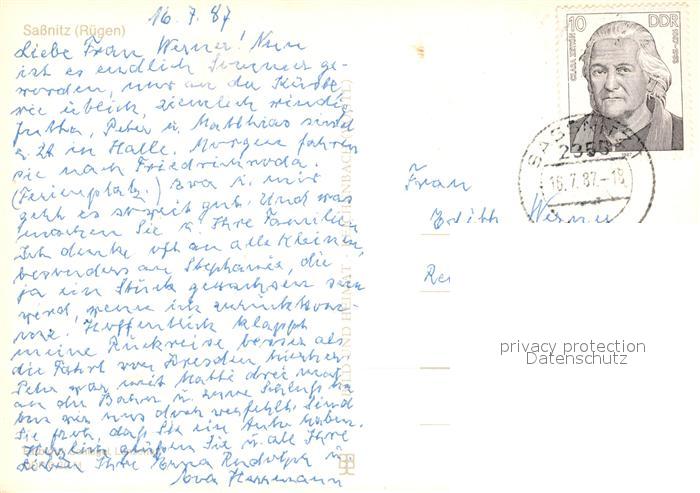 16.7.87
Saßnitz (Rügen)
Liebe Frau Werner! Nun
ist es endlich Sommer ge-
worden, nur an der Küste
wie üblich, ziemlich windig.
Jutta, Peter u. Matthias sind
z. Zt in Halle. Morgen fahren
sie nach Friedrichroda.
(Ferienplatz.) Eva u. mir
geht es soweit gut. Und was
machen Sie u. Ihre Familie
Ich denke oft an alle Kleinen,
besonders an Stephanie, die
ja ein Stück gewachsen sein
wird, wenn ich zurückkom-
me. Hoffentlich klappt
meine Rückreise besser als
die Fahrt von Dresden hierher
Peter war mit Matti drei mal
an der Bahn u. zum Schluß ha
ben wir uns doch verfehlt. Sind
Sie froh, daß Sie ein Auto haben.
Herzlich grüßen Sie u. alle Ihre
Lieben Ihre Rudolph u
Eva Herrmann
BILD UND HEIMAT
10
DDR
CLARA ZETKIN
2355
16.7.87.-18
Frau
Edith Werner
privacy protection
Datenschutz